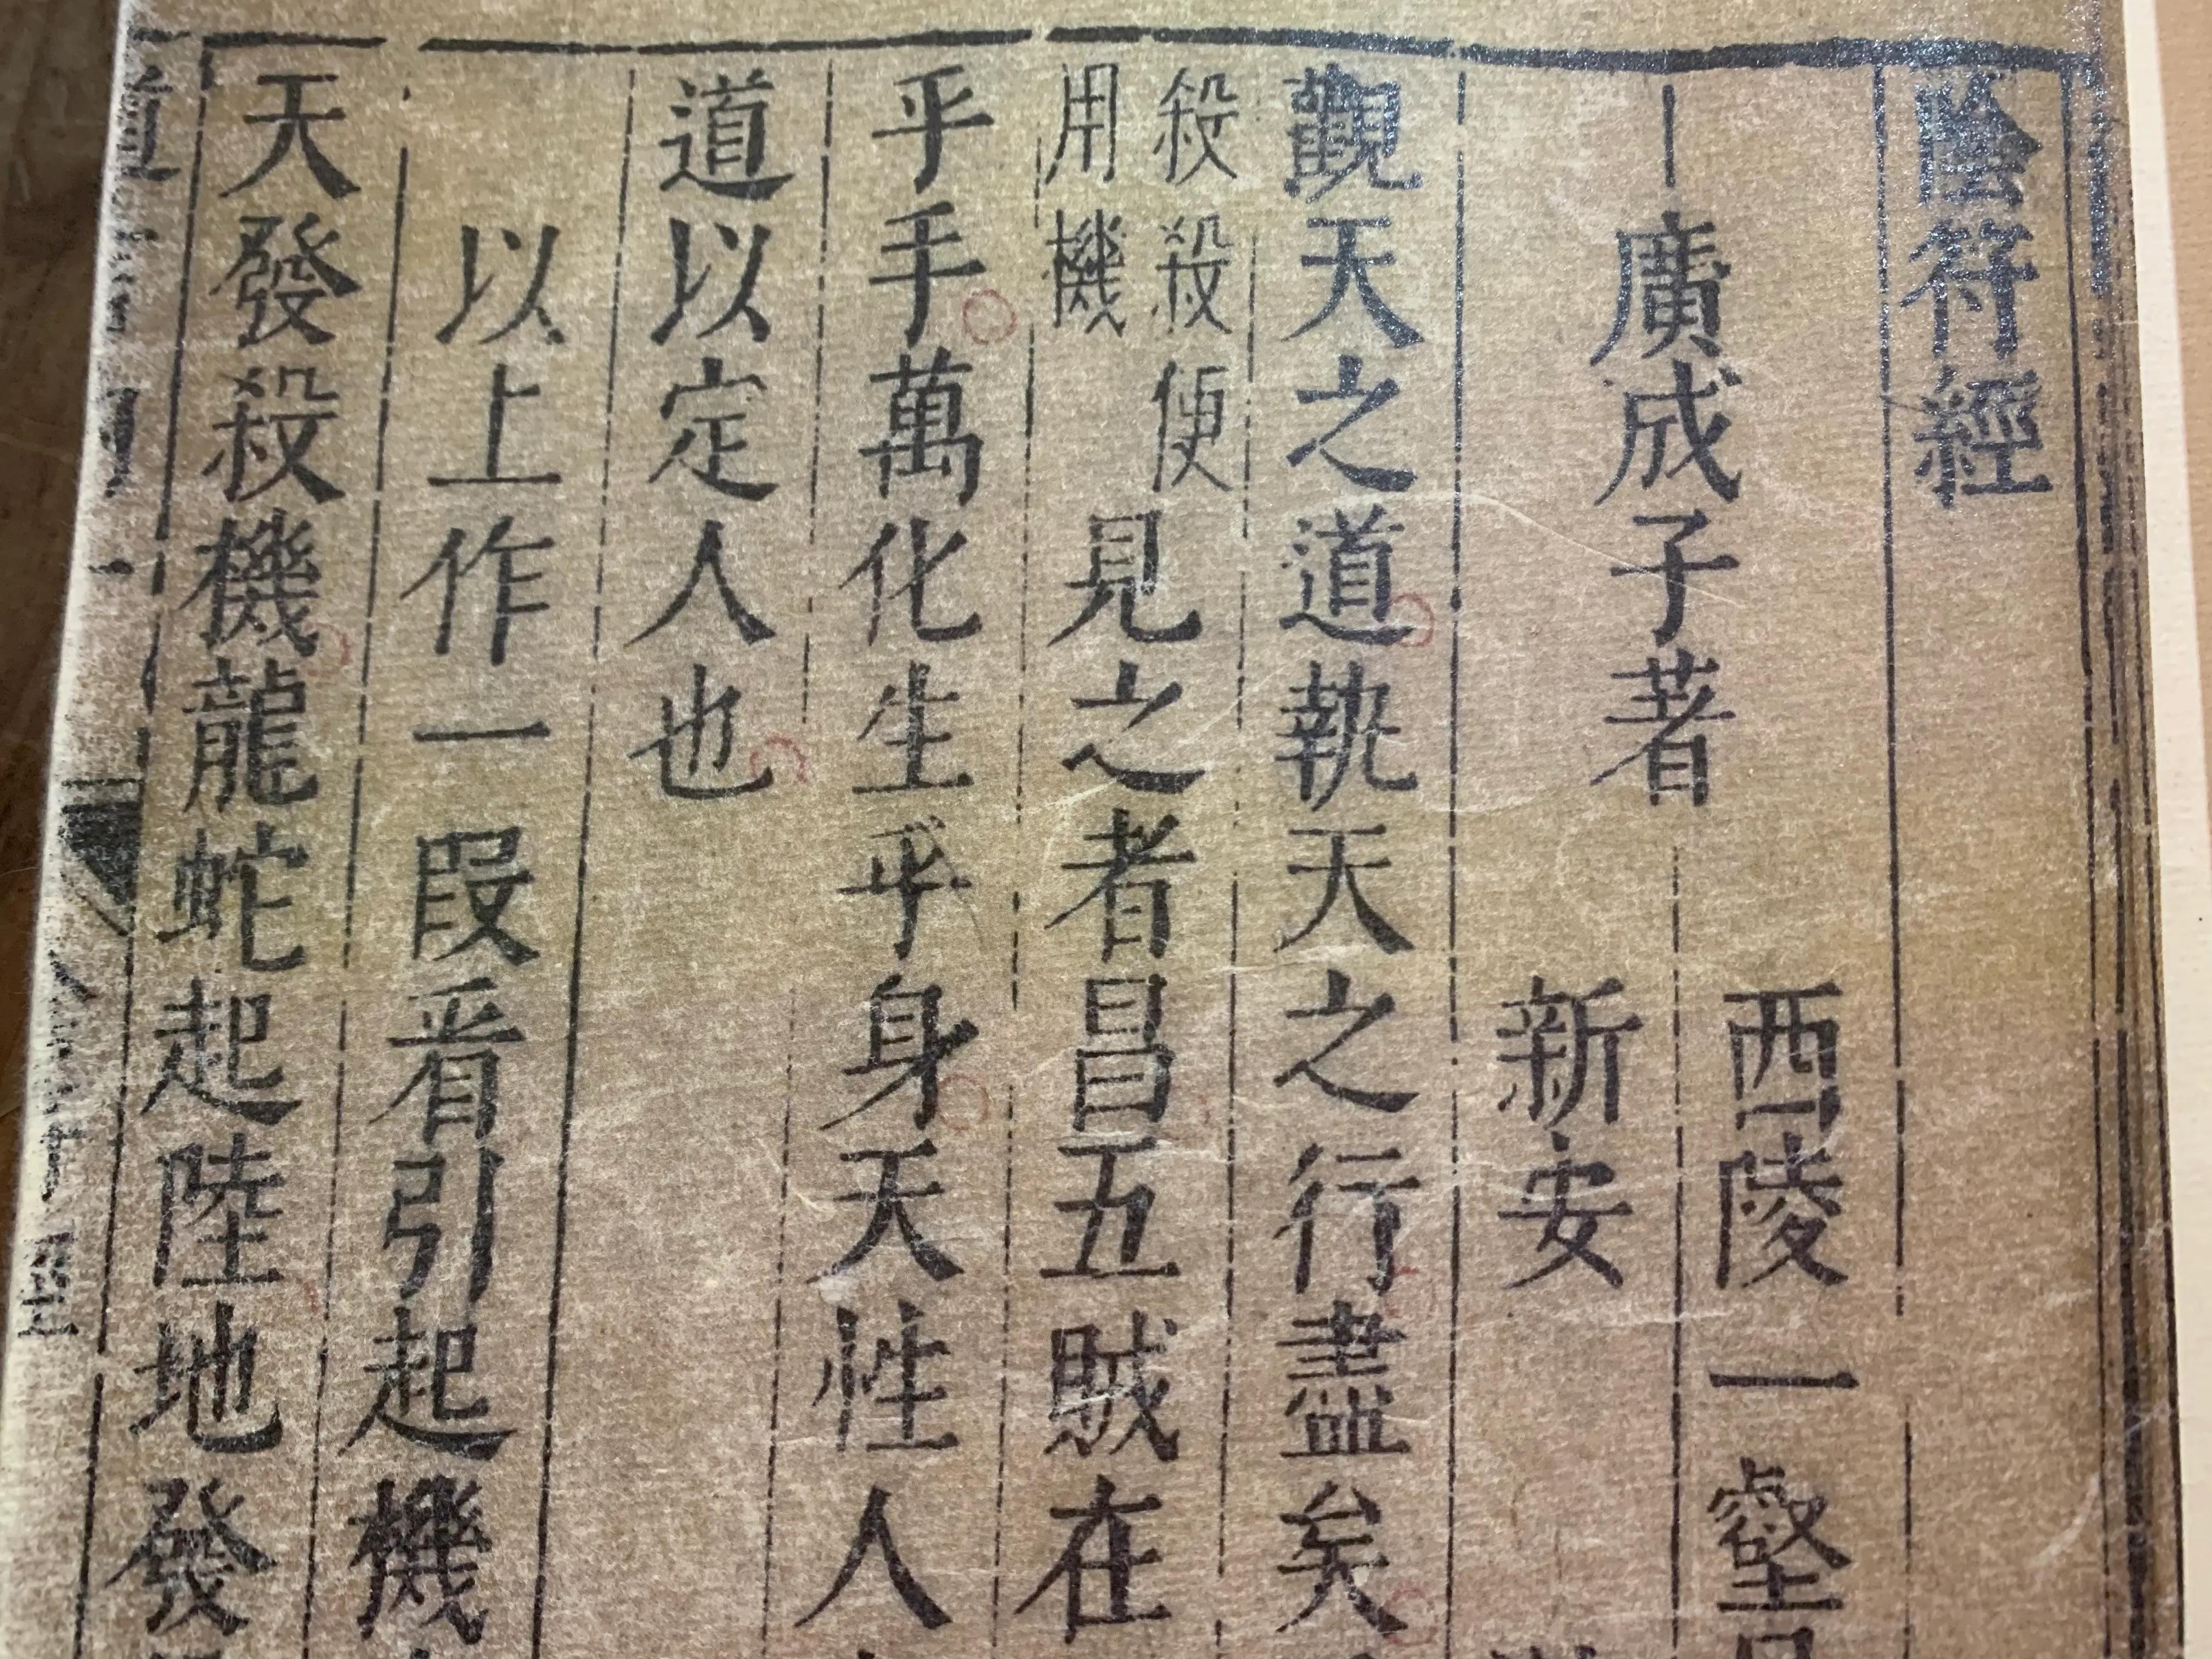 陰符經
廣成子著
西陵一壑
新安
觀天之道執天之行盡矣
殺殺便
用機
見之者昌五賊在
乎手萬化生乎身天性人
道以定人也
以上作一段看引起機
天發殺機龍蛇起陸地發